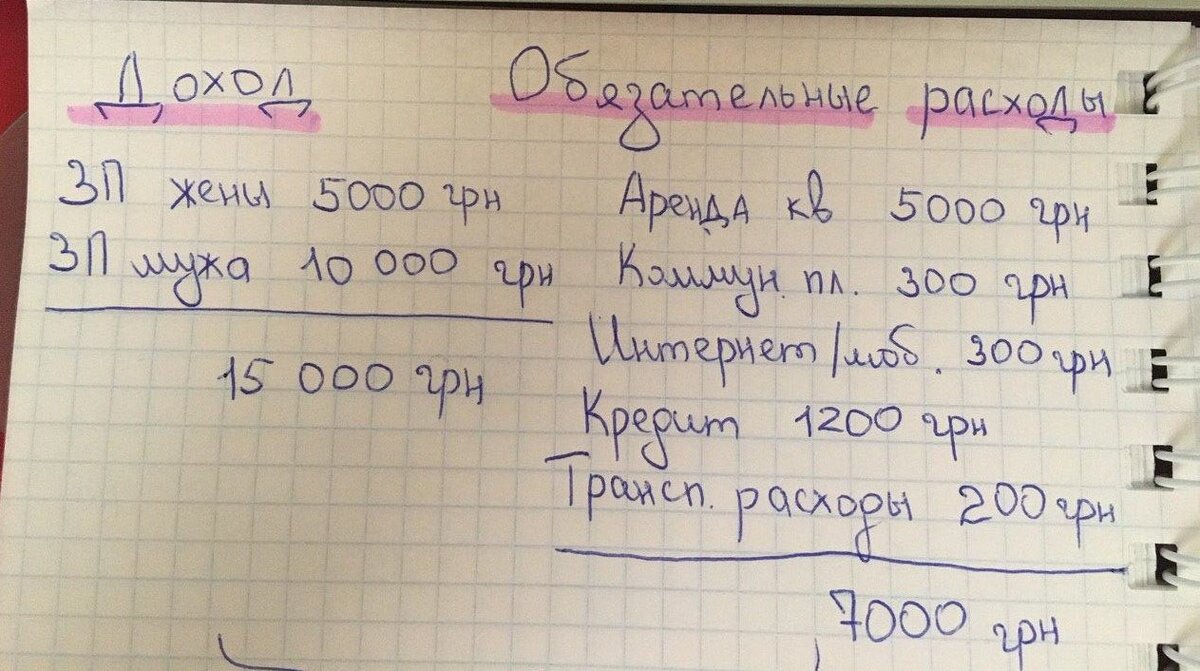 Доход
ЗП жены 5000 грн
ЗП мужа 10 000 грн
15 000 грн
Обязательные расходы
Аренда кв 5000 грн
Коммун. пл. 300 грн
Интернет/моб. 300 грн
Кредит 1200 грн
Трансп. расходы 200 грн
7000 грн